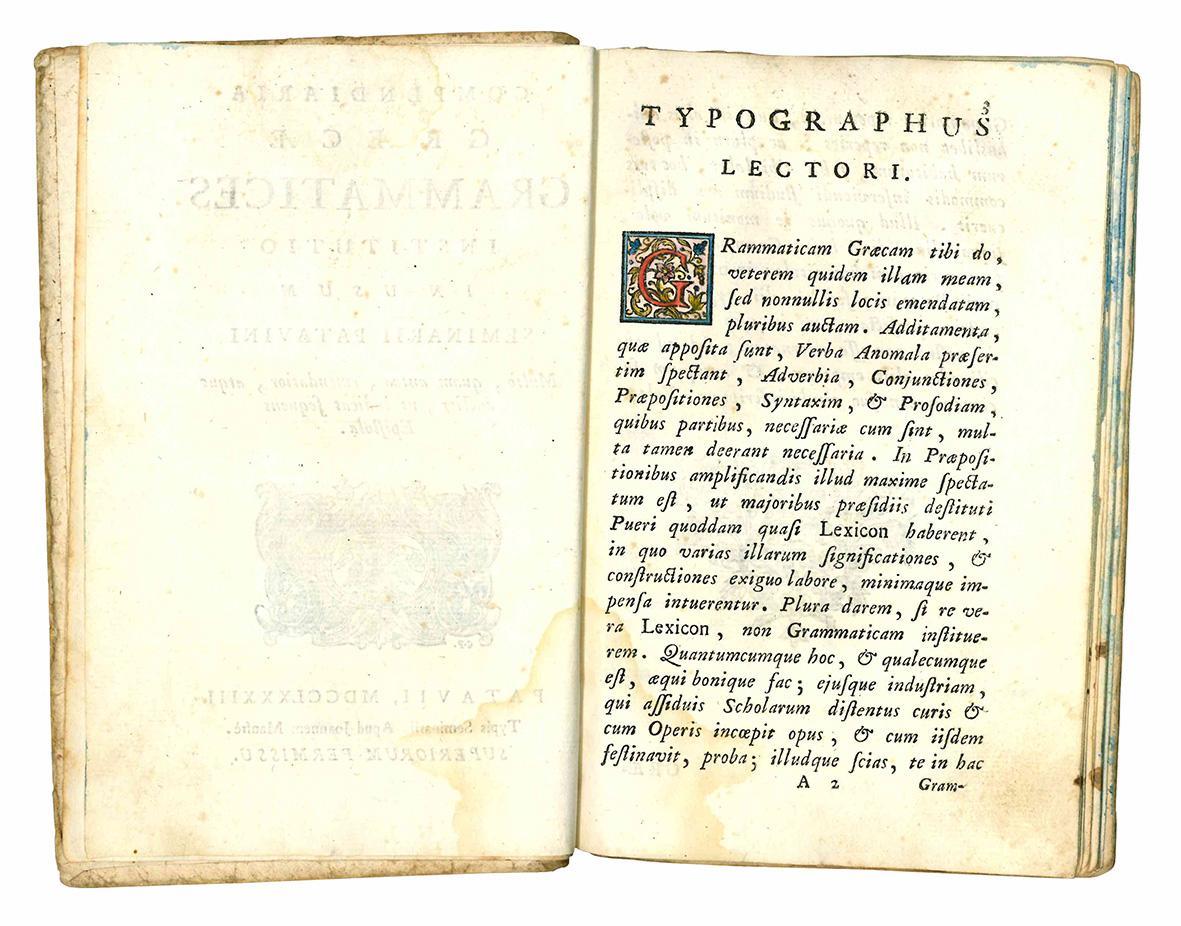 COMPENDIARIA
GRÆCÆ
GRAMMATICES
INSTITUTIO
IN USUM
SEMINARII PATAVINI
Epistola.
PATAVII,
Typis Seminarii. Apud Joannem Manfrè.
SUPERIORUM PERMISSU.
3
TYPOGRAPHUS
LECTORI.
GRammaticam Græcam tibi do,
veterem quidem illam meam,
ſed nonnullis locis emendatam,
pluribus auctam. Additamenta,
quæ appoſita ſunt, Verba Anomala præſer-
tim ſpectant, Adverbia, Conjunctiones,
Præpoſitiones, Syntaxim, & Proſodiam,
quibus partibus, neceſſariæ cum ſint, mul-
ta tamen deerant neceſſaria. In Præpoſi-
tionibus amplificandis illud maxime ſpecta-
tum eſt, ut majoribus præſidiis deſtituti
Pueri quoddam quaſi Lexicon haberent,
in quo varias illarum ſignificationes, &
conſtructiones exiguo labore, minimaque im-
penſa intuerentur. Plura darem, ſi re ve-
ra Lexicon, non Grammaticam inſtitue-
rem. Quantumcumque hoc, & qualecumque
eſt, æqui bonique fac; ejuſque induſtriam,
qui aſſiduis Scholarum diſtentus curis &
cum Operis incœpit opus, & cum iiſdem
feſtinavit, proba; illudque ſcias, te in hac
A 2 Gram-